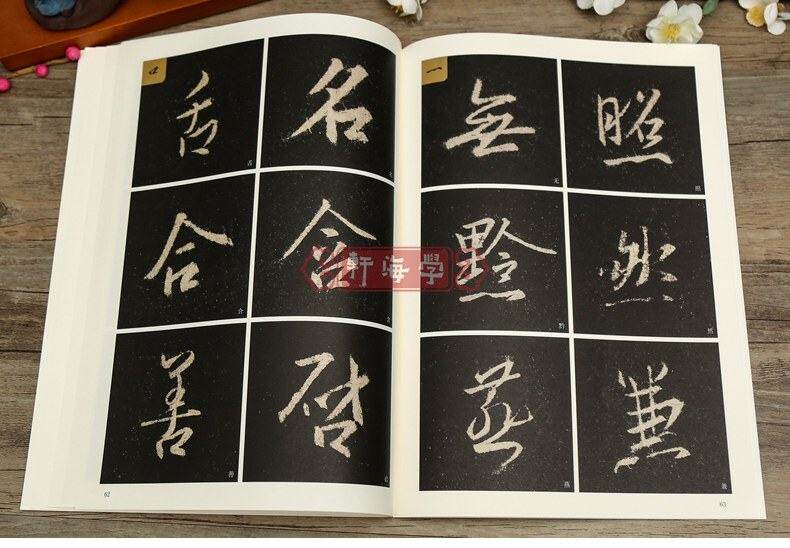 口
舌 名
舌
合 含
合
善 啓
善
62
一
無 照
无 照
黔 然
黔 然
燕 兼
燕 兼
63
軒海學